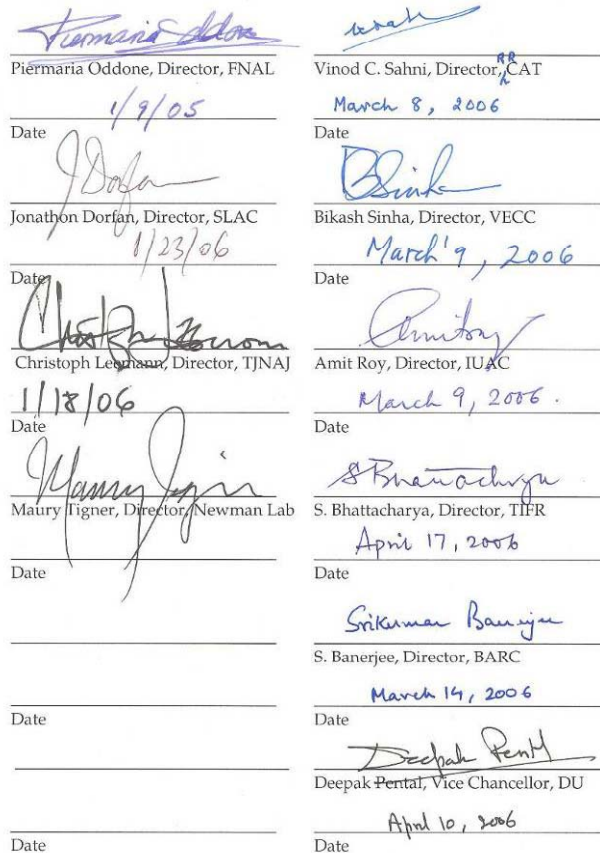 Piermaria Oddone
Piermaria Oddone, Director, FNAL
1/9/05
Date
J Dorfan
Jonathon Dorfan, Director, SLAC
1/23/06
Date
Christoph Leemann, Director, TJNAJ
1/18/06
Date
Maury Tigner
Maury Tigner, Director, Newman Lab
Date
Date
Date
RR
Vinod C. Sahni, Director, CAT
March 8, 2006
Date
BSinha
Bikash Sinha, Director, VECC
March 9, 2006
Date
Amitroy
Amit Roy, Director, IUAC
March 9, 2006.
Date
S Bhattacharya
S. Bhattacharya, Director, TIFR
April 17, 2006
Date
Srikumar Banerjee
S. Banerjee, Director, BARC
March 14, 2006
Date
Deepak Pental
Deepak Pental, Vice Chancellor, DU
April 10, 2006
Date